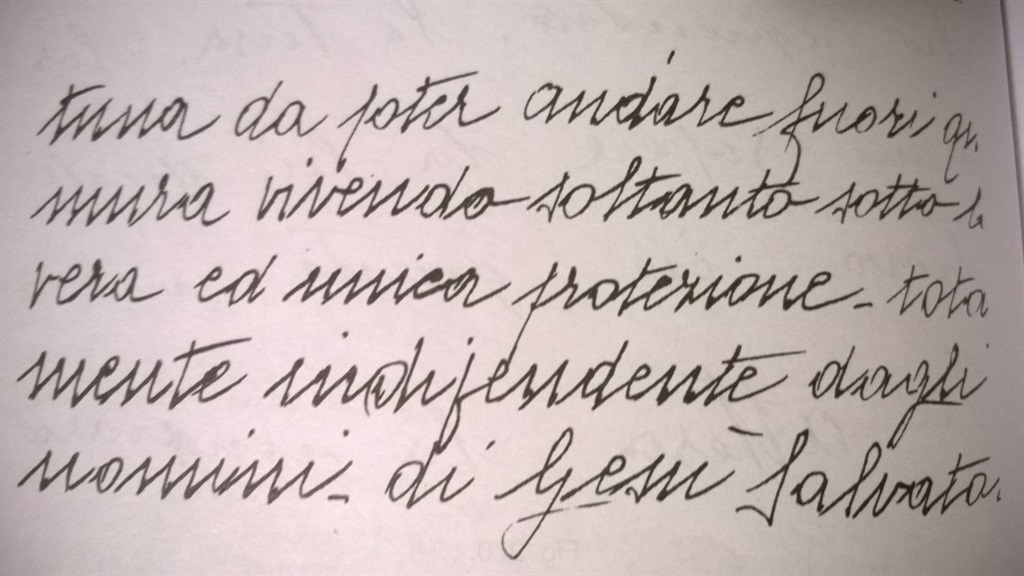 tuna da poter andare fuori qu
mura vivendo soltanto sotto la
vera ed unica protezione - tota
mente indipendente dagli
uomini - di Gesù Salvato.